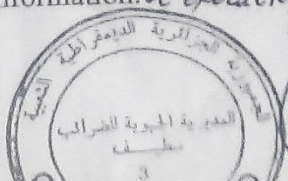 nformation.
الجمهورية الجزائرية الديمقراطية الشعبية
المديرية الجهوية للضرائب
سطيف